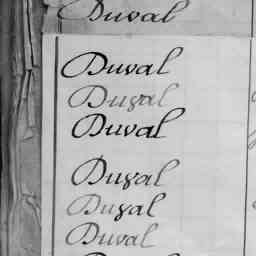 Duval
Duval
Duval
Duval
Duval
Duval
Duval